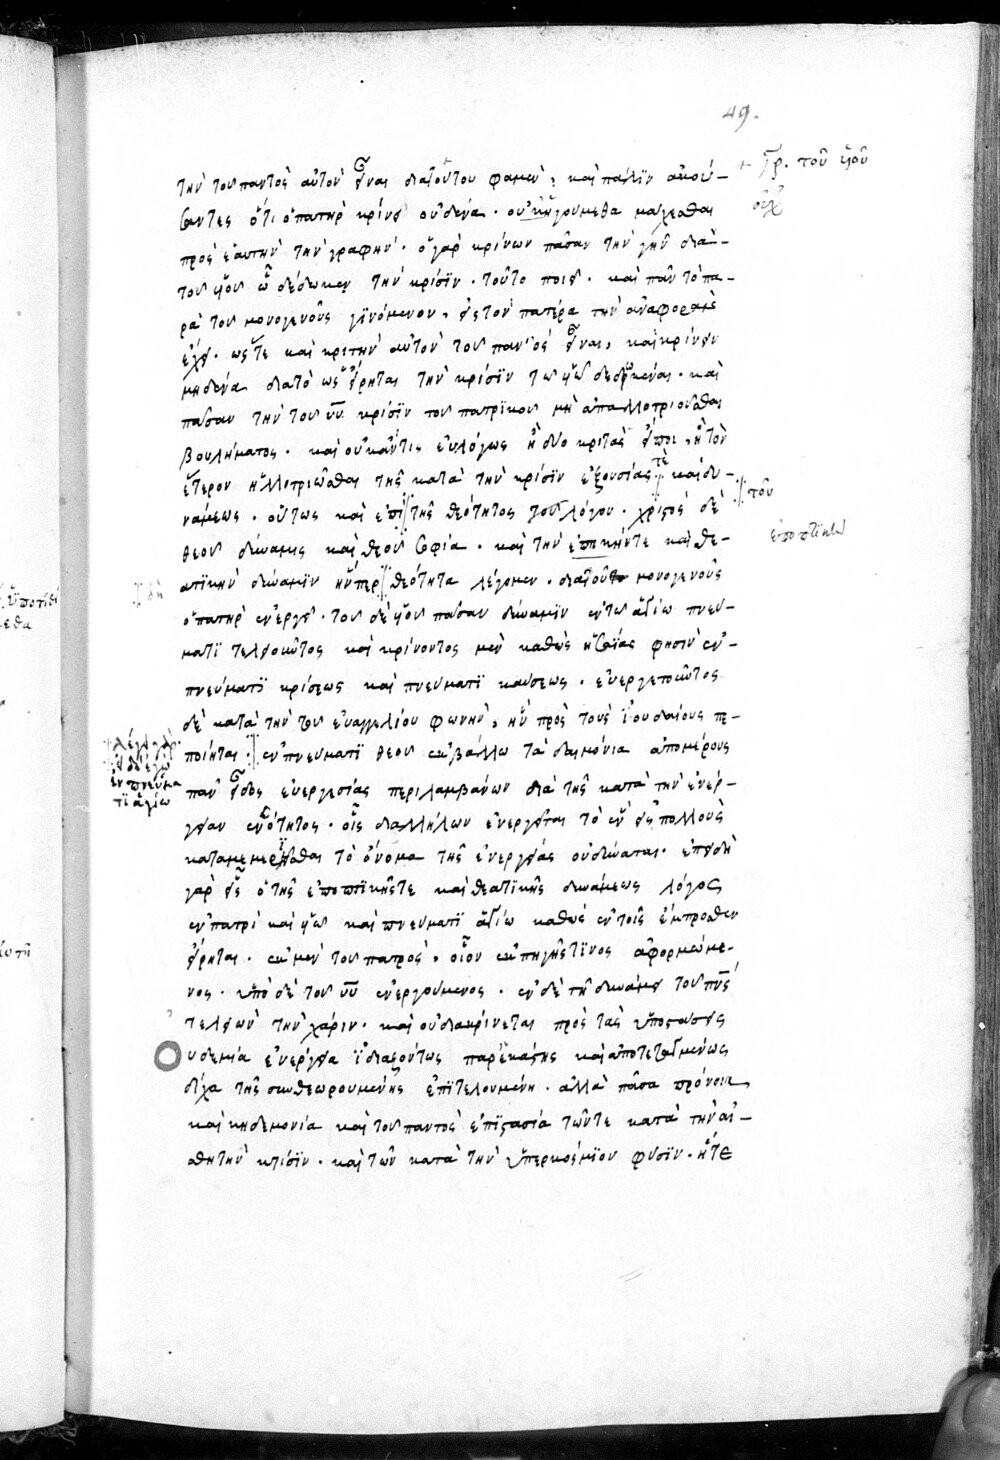 49.
τὴν τοῦ παντὸς αὐτὸν εἶναι διὰ τούτου φαμεν· καὶ πάλϊν ἀκού-
+ γρ. τοῦ υἱοῦ
σαντες ὅτι ὁ πατὴρ κρίνει οὐδένα. οὐκ ἡγούμεθα μάχεσθαι
οὐχ
πρὸς ἑαυτὴν τὴν γραφήν. ὁ γὰρ κρίνων πᾶσαν τὴν γῆν διὰ
τοῦ υἱοῦ ᾧ δέδωκεν τὴν κρίσϊν. τοῦτο ποιεῖ. καὶ πᾶν τὸ πα-
ρὰ τοῦ μονογενοῦς γϊνόμενον, εἰς τὸν πατέρα τὴν ἀναφορὰν
ἔχει. ὥς τε καὶ κριτὴν αὐτὸν τοῦ παντὸς εἶναι, καὶ κρίνειν
μηδένα διὰ τὸ ὡς εἴρηται τὴν κρίσϊν τῷ υἱῷ δεδωκέναι. καὶ
πᾶσαν τὴν τοῦ υῦ κρίσϊν τοῦ πατρϊκοῦ μὴ ἀπαλλοτριοῦσθαι
βουλήματος. καὶ οὐκ ἄν τις εὐλόγως ἢ δύο κριτὰς εἴποι, ἢ τὸν
ἕτερον ἠλλοτριῶσθαι τῆς κατὰ τὴν κρίσϊν ἐξουσίας τὲ καὶ δυ-
νάμεως. οὕτως καὶ ἐπὶ τῆς θεότητος τοῦ λόγου. χριστὸς δὲ
τοῦ
θεοῦ δύναμις καὶ θεοῦ σοφία. καὶ τὴν ἐπικήν τε καὶ θε-
ἐποπτϊκὴν
ατϊκὴν δύναμϊν ἥν περ θεότητα λέγομεν. διὰ τοῦ μονογενοῦς
δὴ
ὁ πατὴρ ἐνεργεῖ. τοῦ δὲ υἱοῦ πᾶσαν δύναμϊν ἐν τῷ ἁγίω πνεύ-
ματϊ τελειοῦντος καὶ κρίνοντος μὲν καθὼς ἡσαΐας φησὶν ἐν
πνεύματϊ κρίσεως καὶ πνεύματϊ καύσεως. εὐεργετοῦντος
δὲ κατὰ τὴν τοῦ εὐαγγελίου φωνὴν, ἣν πρὸς τοὺς ἰουδαίους πε-
ποίηται. ἐν πνεύματϊ θεοῦ ἐκβάλλω τὰ δαιμόνια ἀπὸ μέρους
λέγει γὰρ.
εἰ δὲ ἐγὼ
ἐν πνεύμα
τϊ ἁγίω
πᾶν εἶδος εὐεργεσίας περιλαμβάνων διὰ τῆς κατὰ τὴν ἐνέρ-
γειαν ἑνότητος. οἷς διαλλήλων ἐνεργεῖται τὸ ἓν εἰς πολλοὺς
καταμεμερίσθαι τὸ ὄνομα τῆς ἐνεργείας οὐ δύναται. ἐπειδὴ
γὰρ εἷς ὁ τῆς ἐποπτϊκῆς τε καὶ θεατϊκῆς δυνάμεως λόγος
ἐν πατρὶ καὶ υἱῶ καὶ πνεύματϊ ἁγίω καθὼς ἐν τοῖς ἔμπροσθεν
εἴρηται. ἐκ μὲν τοῦ πατρὸς, οἷον ἐκ πηγῆς τϊνος ἀφορμώμε-
νος. ὑπὸ δὲ τοῦ υῦ ἐνεργούμενος. ἐν δὲ τῇ δυνάμει τοῦ πνς
τελειῶν τὴν χάριν. καὶ οὐ διακρίνεται πρὸς τὰς ὑποστάσεις
οὐδεμία ἐνέργεια ἰδιαζόντως παρ' ἑκάστης καὶ ἀποτεταγμένως
δίχα τῆς συνθεωρουμένης ἐπϊτελουμένη. ἀλλὰ πᾶσα πρόνοια
καὶ κηδεμονία καὶ τοῦ παντὸς ἐπϊστασία τῶν τε κατὰ τὴν αἰ-
σθητὴν κτίσϊν. καὶ τῶν κατὰ τὴν ὑπερκόσμϊον φύσϊν. ἥ τε